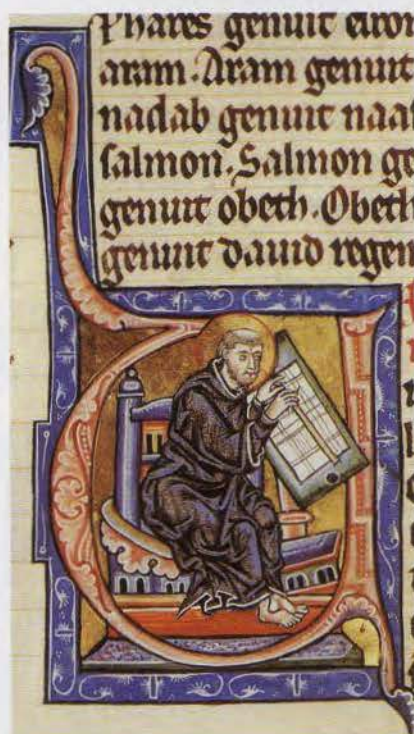 Phares genuit
aram. Aram genuit
nadab genuit naa
salmon. Salmon ge
genuit obeth. Obeth
genuit dauid regem